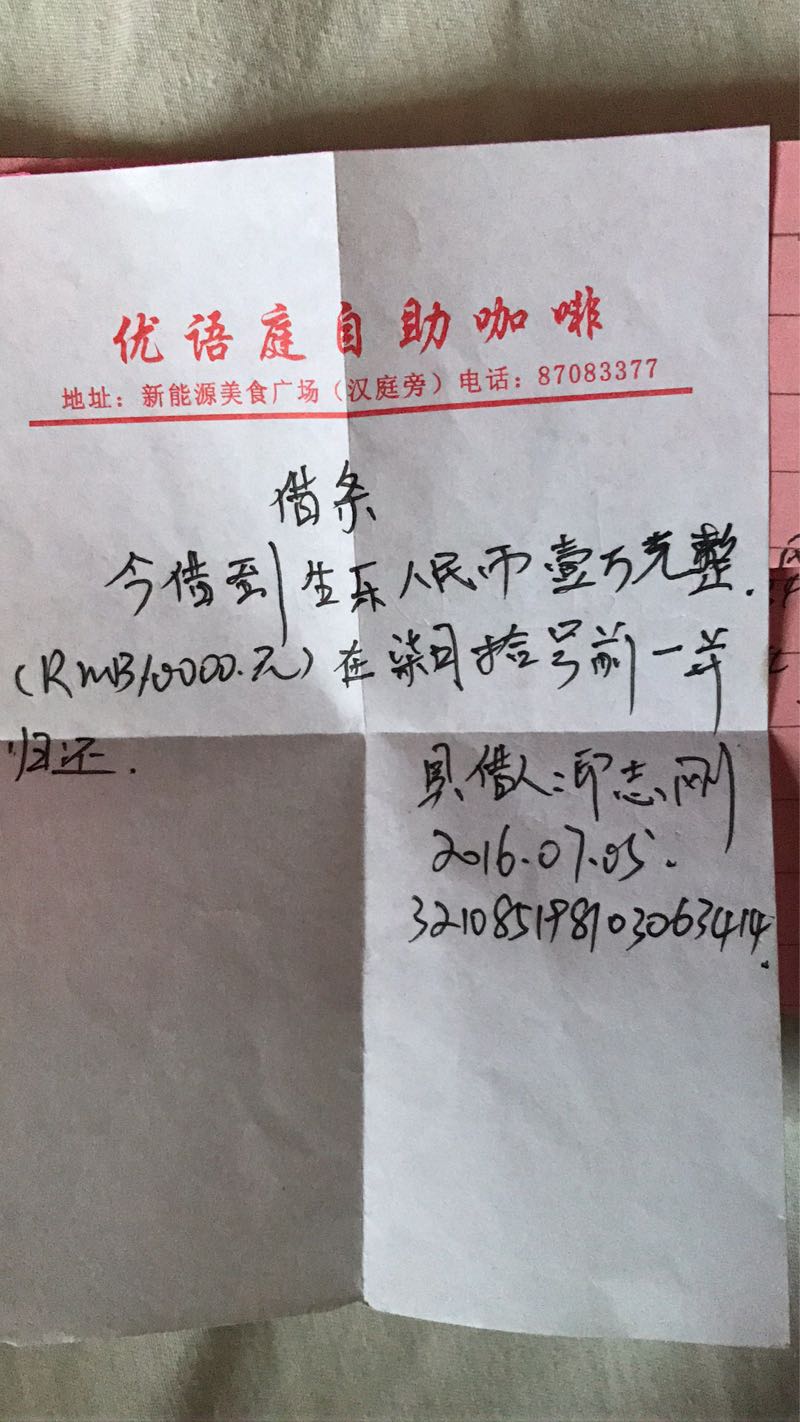 优语庭自助咖啡
地址：新能源美食广场（汉庭旁）电话：87083377
借条
今借到生乐人民币壹万元整.
(RMB10000.元)在柒月拾号前一并
归还.
具借人：邱志刚
2016.07.05.
321085198103063414.